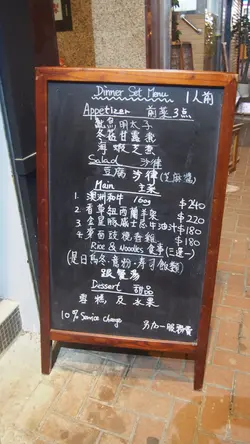 Dinner Set Menu 1人前
Appetizer 前菜3点
魷魚明太子
冬菇甘露煮
海蝦芝煮
Salad 沙律
豆腐沙律(芝麻醬)
Main 主菜
1. 澳洲和牛 160g $240
2. 香草紐西蘭羊架 $220
3. $180
4. $180
Rice & Noodles 食事(三選一)
(是日烏冬·意粉·壽司飯類)
跟餐湯
Dessert 甜品
雪糕及水果
10% Service charge 另加一服務費